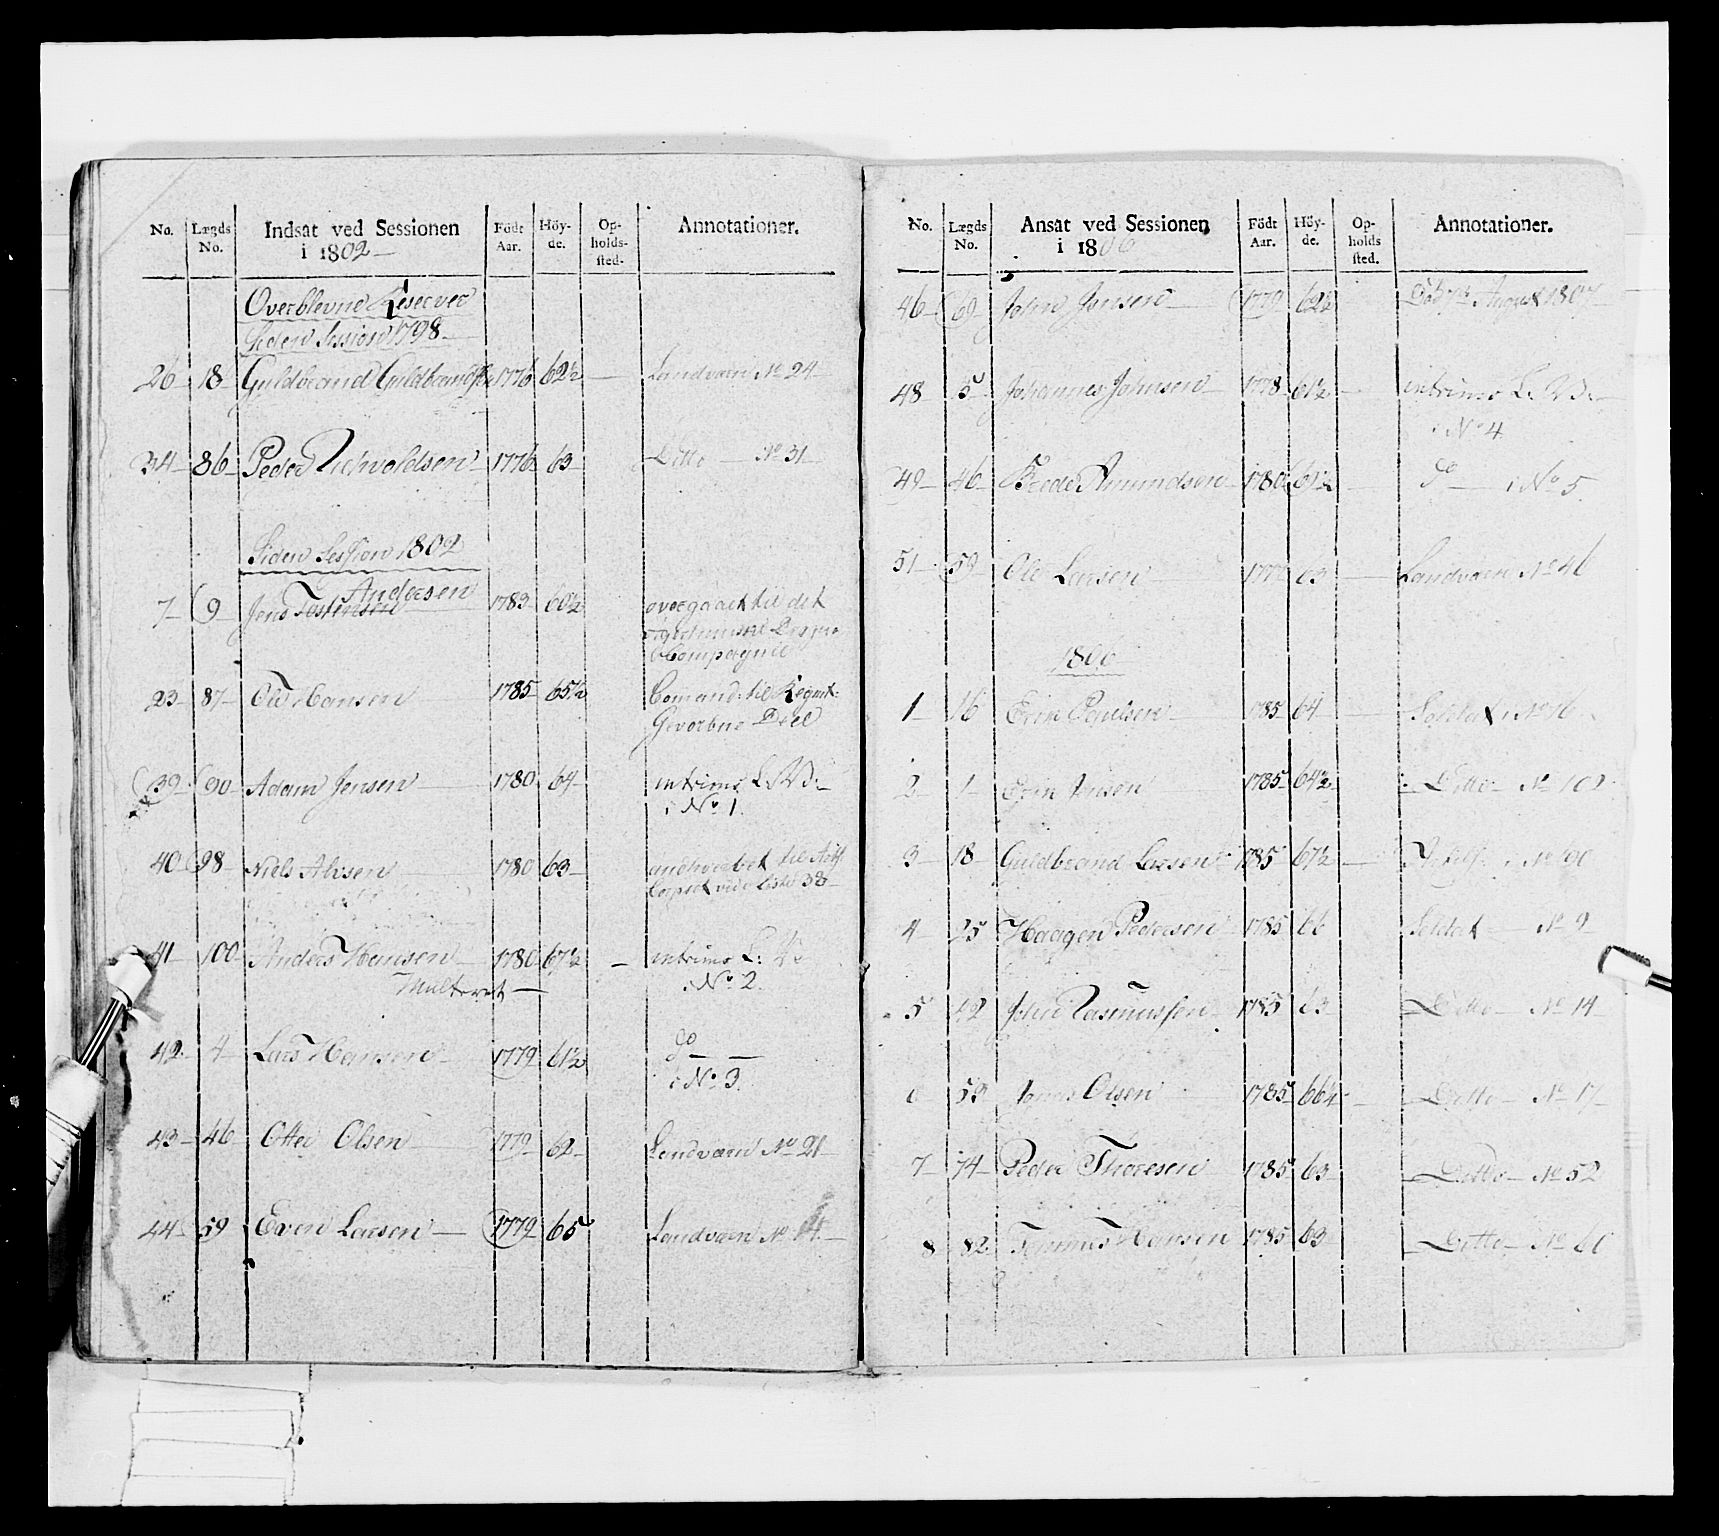 No. Lægds No. Indsat ved Sessionen i 1802 Födt Aar. Höy- de. Op- holds- sted. Annotationer.
Overblevne Reserver
Siden Session 1798
26 18 Guldbrand Guldbrands 1776 62½ Landværn No 24
34 86 Peder 1776 63 Ditto No 31
Siden Session 1802
Andersen
7 9 Jens Torstensen 1783 60½ overgaaet til det
Compagnie
23 87 Ole Hansen 1785 65½ Comand: til Regmt:
Gevorbne Deel
39 90 Adam Jensen 1780 64 intrims L: V:
i No 1.
40 98 Niels 1780 63 til Artl.
Corpset vide Liste 38
41 100 Anders Hansen 1780 67½ intrims L: V:
Multeret i No 2.
42 4 Lars Hansen 1779 61½ do
i No 3.
43 46 Otter Olsen 1779 62 Landværn No 21
44 59 Even Larsen 1779 65 Landværn No 14
No. Lægds No. Ansat ved Sessionen i 1806 Födt Aar. Höy- de. Op- holds sted. Annotationer.
46 69 John Jensen 1779 62½ August 1807
48 5 Johannes Johnsen 1778 61½ intrims L: V:
i No 4
49 46 Amundsen 1780 61½ do i No 5
51 59 Ole Larsen 63 Landværn No 46
1806
1 16 Erik Poulsen 1785 64 Soldat No 16
2 1 Jensen 1785 64½ Ditto No 102
3 18 Guldbrand Larsen 1785 67½ No 100
4 25 Haagen Pedersen 1785 66 Soldat No 9
5 42 John Rasmussen 1785 63 Ditto No 14
6 59 Olsen 1785 66½ Ditto No 17
7 74 Peder Thoresen 1785 63 Ditto No 52
8 82 Hansen 1785 63 Ditto No 60